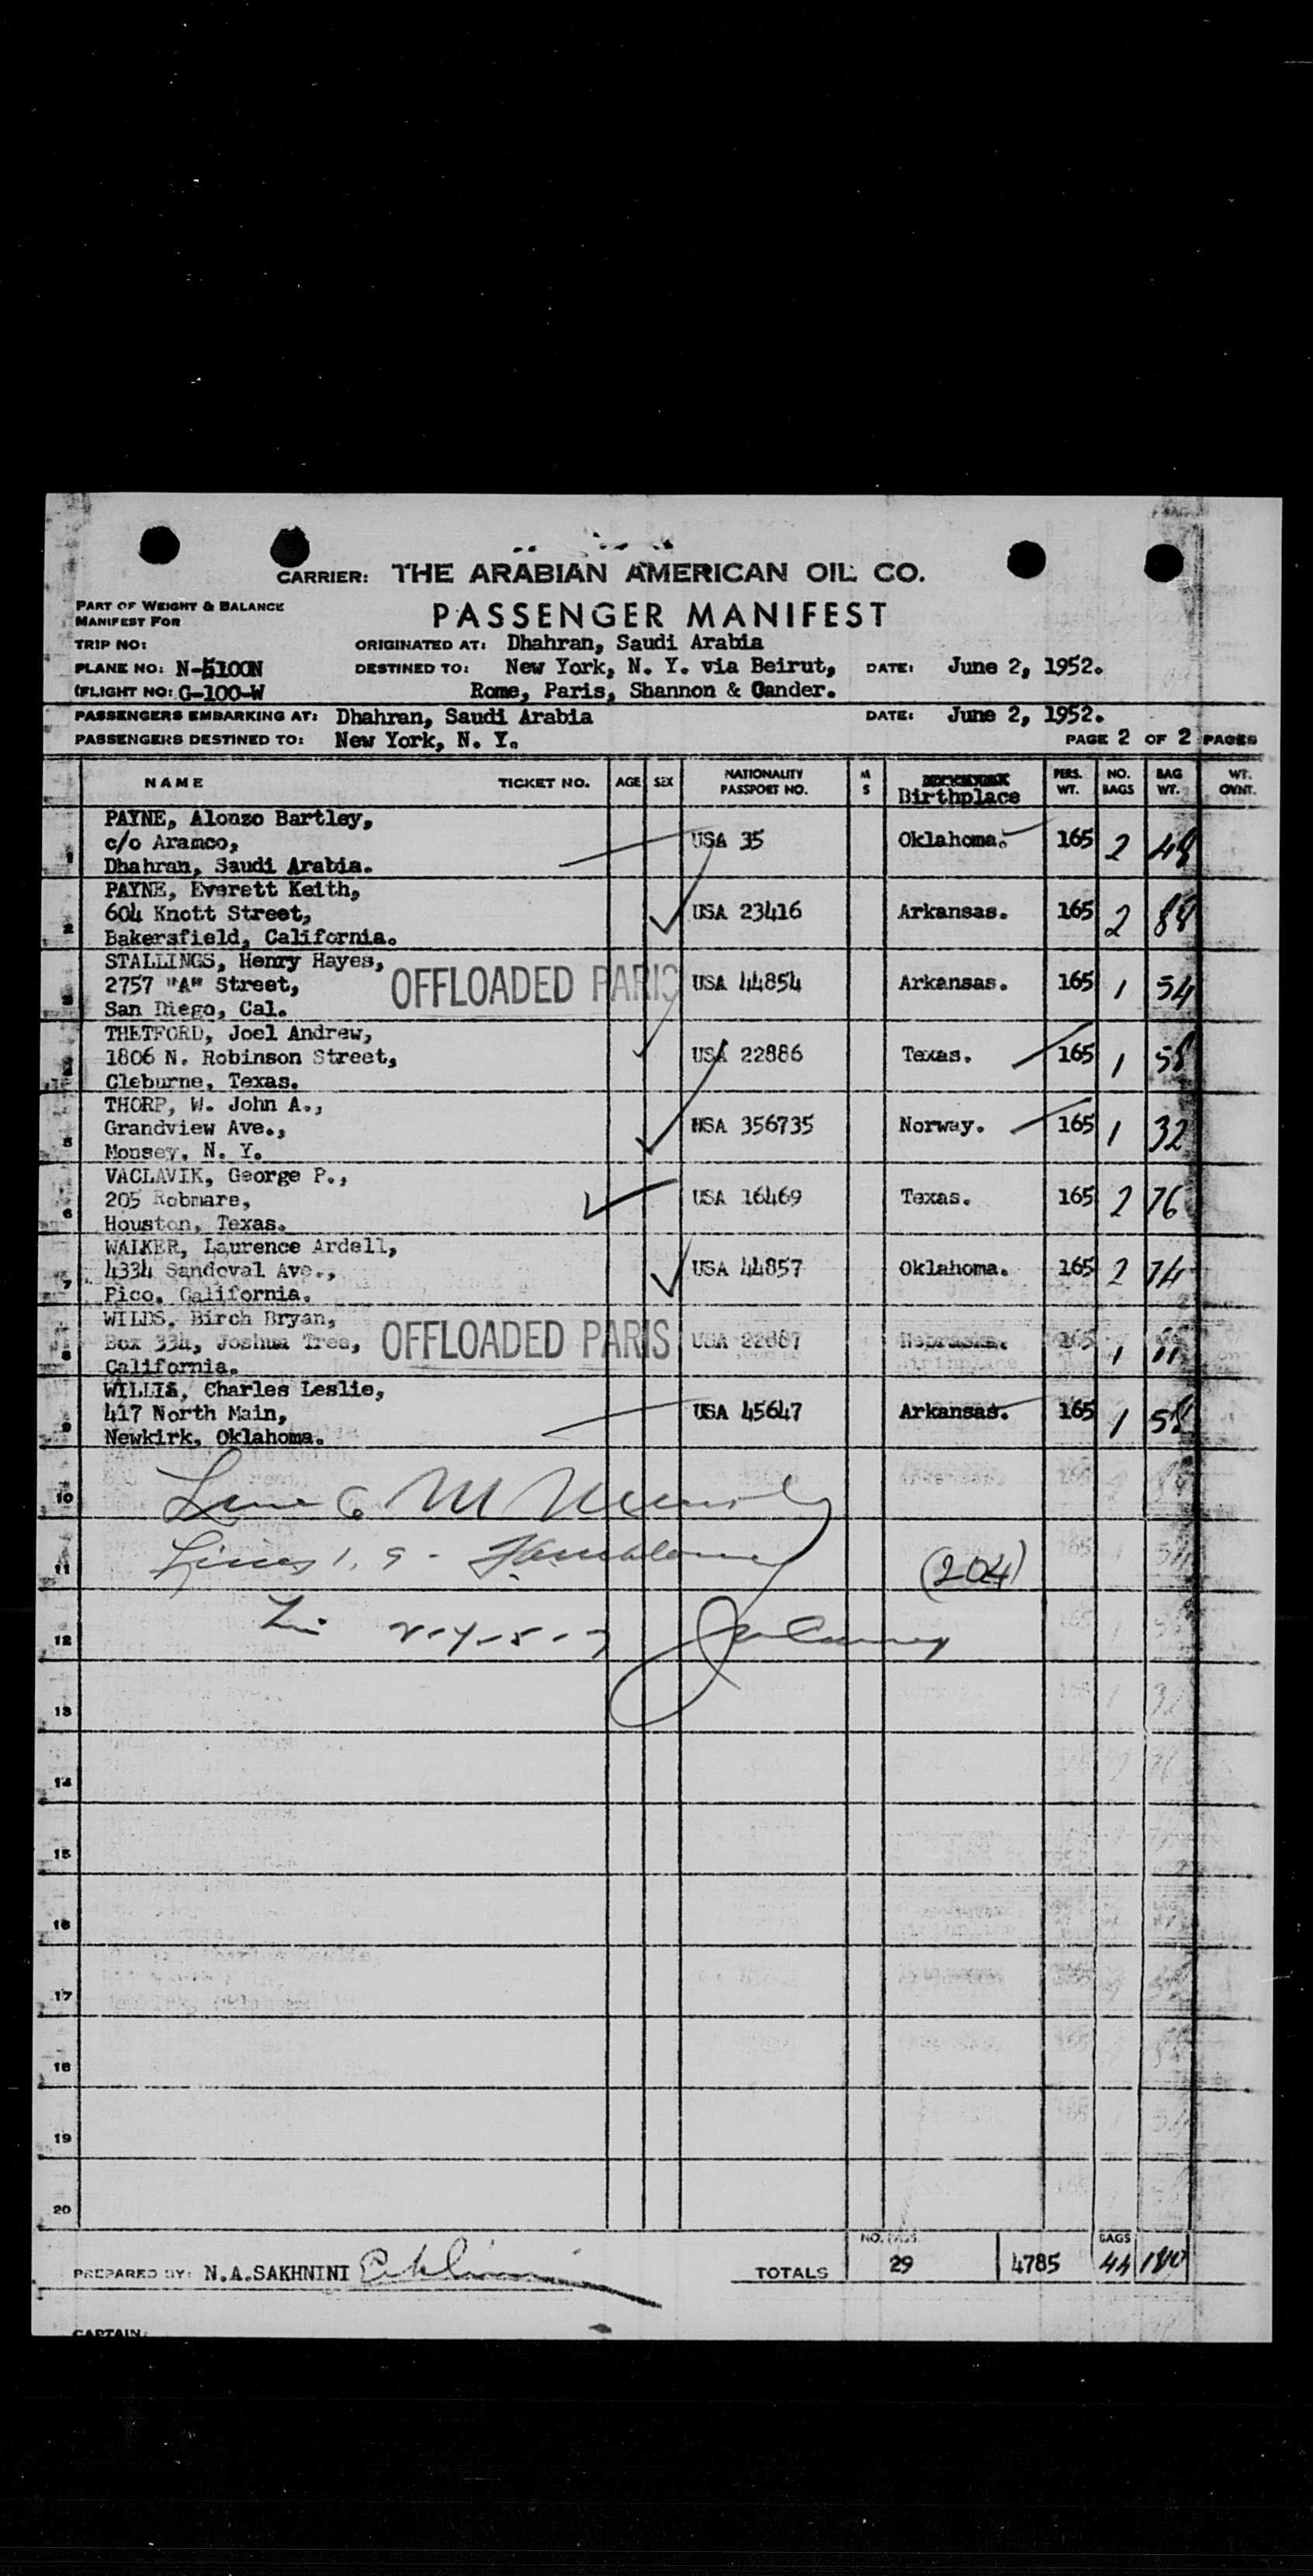 CARRIER: THE ARABIAN AMERICAN OIL CO.
PART OF WEIGHT & BALANCE
MANIFEST FOR
PASSENGER MANIFEST
TRIP NO:
ORIGINATED AT: Dhahran, Saudi Arabia
PLANE NO: N-5100N
DESTINED TO: New York, N. Y. via Beirut, DATE: June 2, 1952.
FLIGHT NO: G-100-W
Rome, Paris, Shannon & Gander.
PASSENGERS EMBARKING AT: Dhahran, Saudi Arabia DATE: June 2, 1952.
PASSENGERS DESTINED TO: New York, N. Y. PAGE 2 OF 2 PAGES
NAME TICKET NO. AGE SEX NATIONALITY PASSPORT NO. M S Birthplace PERS. WT. NO. BAGS BAG WT. WT. OVNT.
PAYNE, Alonzo Bartley,
c/o Aramco, USA 35 Oklahoma. 165 2 48
1 Dhahran, Saudi Arabia.
PAYNE, Everett Keith,
604 Knott Street, USA 23416 Arkansas. 165 2 88
2 Bakersfield, California.
STALLINGS, Henry Hayes,
2757 "A" Street, OFFLOADED PARIS USA 44854 Arkansas. 165 1 54
3 San Diego, Cal.
THETFORD, Joel Andrew,
1806 N. Robinson Street, USA 22886 Texas. 165 1 58
Cleburne, Texas.
THORP, W. John A.,
Grandview Ave., USA 356735 Norway. 165 1 32
5 Monsey, N. Y.
VACLAVIK, George P.,
205 Robmare, USA 16469 Texas. 165 2 76
6 Houston, Texas.
WALKER, Laurence Ardell,
4334 Sandoval Ave., USA 44857 Oklahoma. 165 2 74
7 Pico, California.
WILDS, Birch Bryan,
Box 334, Joshua Tree, OFFLOADED PARIS USA 22887 Nebraska. 165 1
8 California.
WILLIS, Charles Leslie,
417 North Main, USA 45647 Arkansas. 165 1 58
9 Newkirk, Oklahoma.
10 Line 6
11 Lines 1, 9 - (204)
12
13
14
15
16
17
18
19
20
NO. PASS. BAGS
PREPARED BY: N.A.SAKHNINI TOTALS 29 4785 44
CAPTAIN: